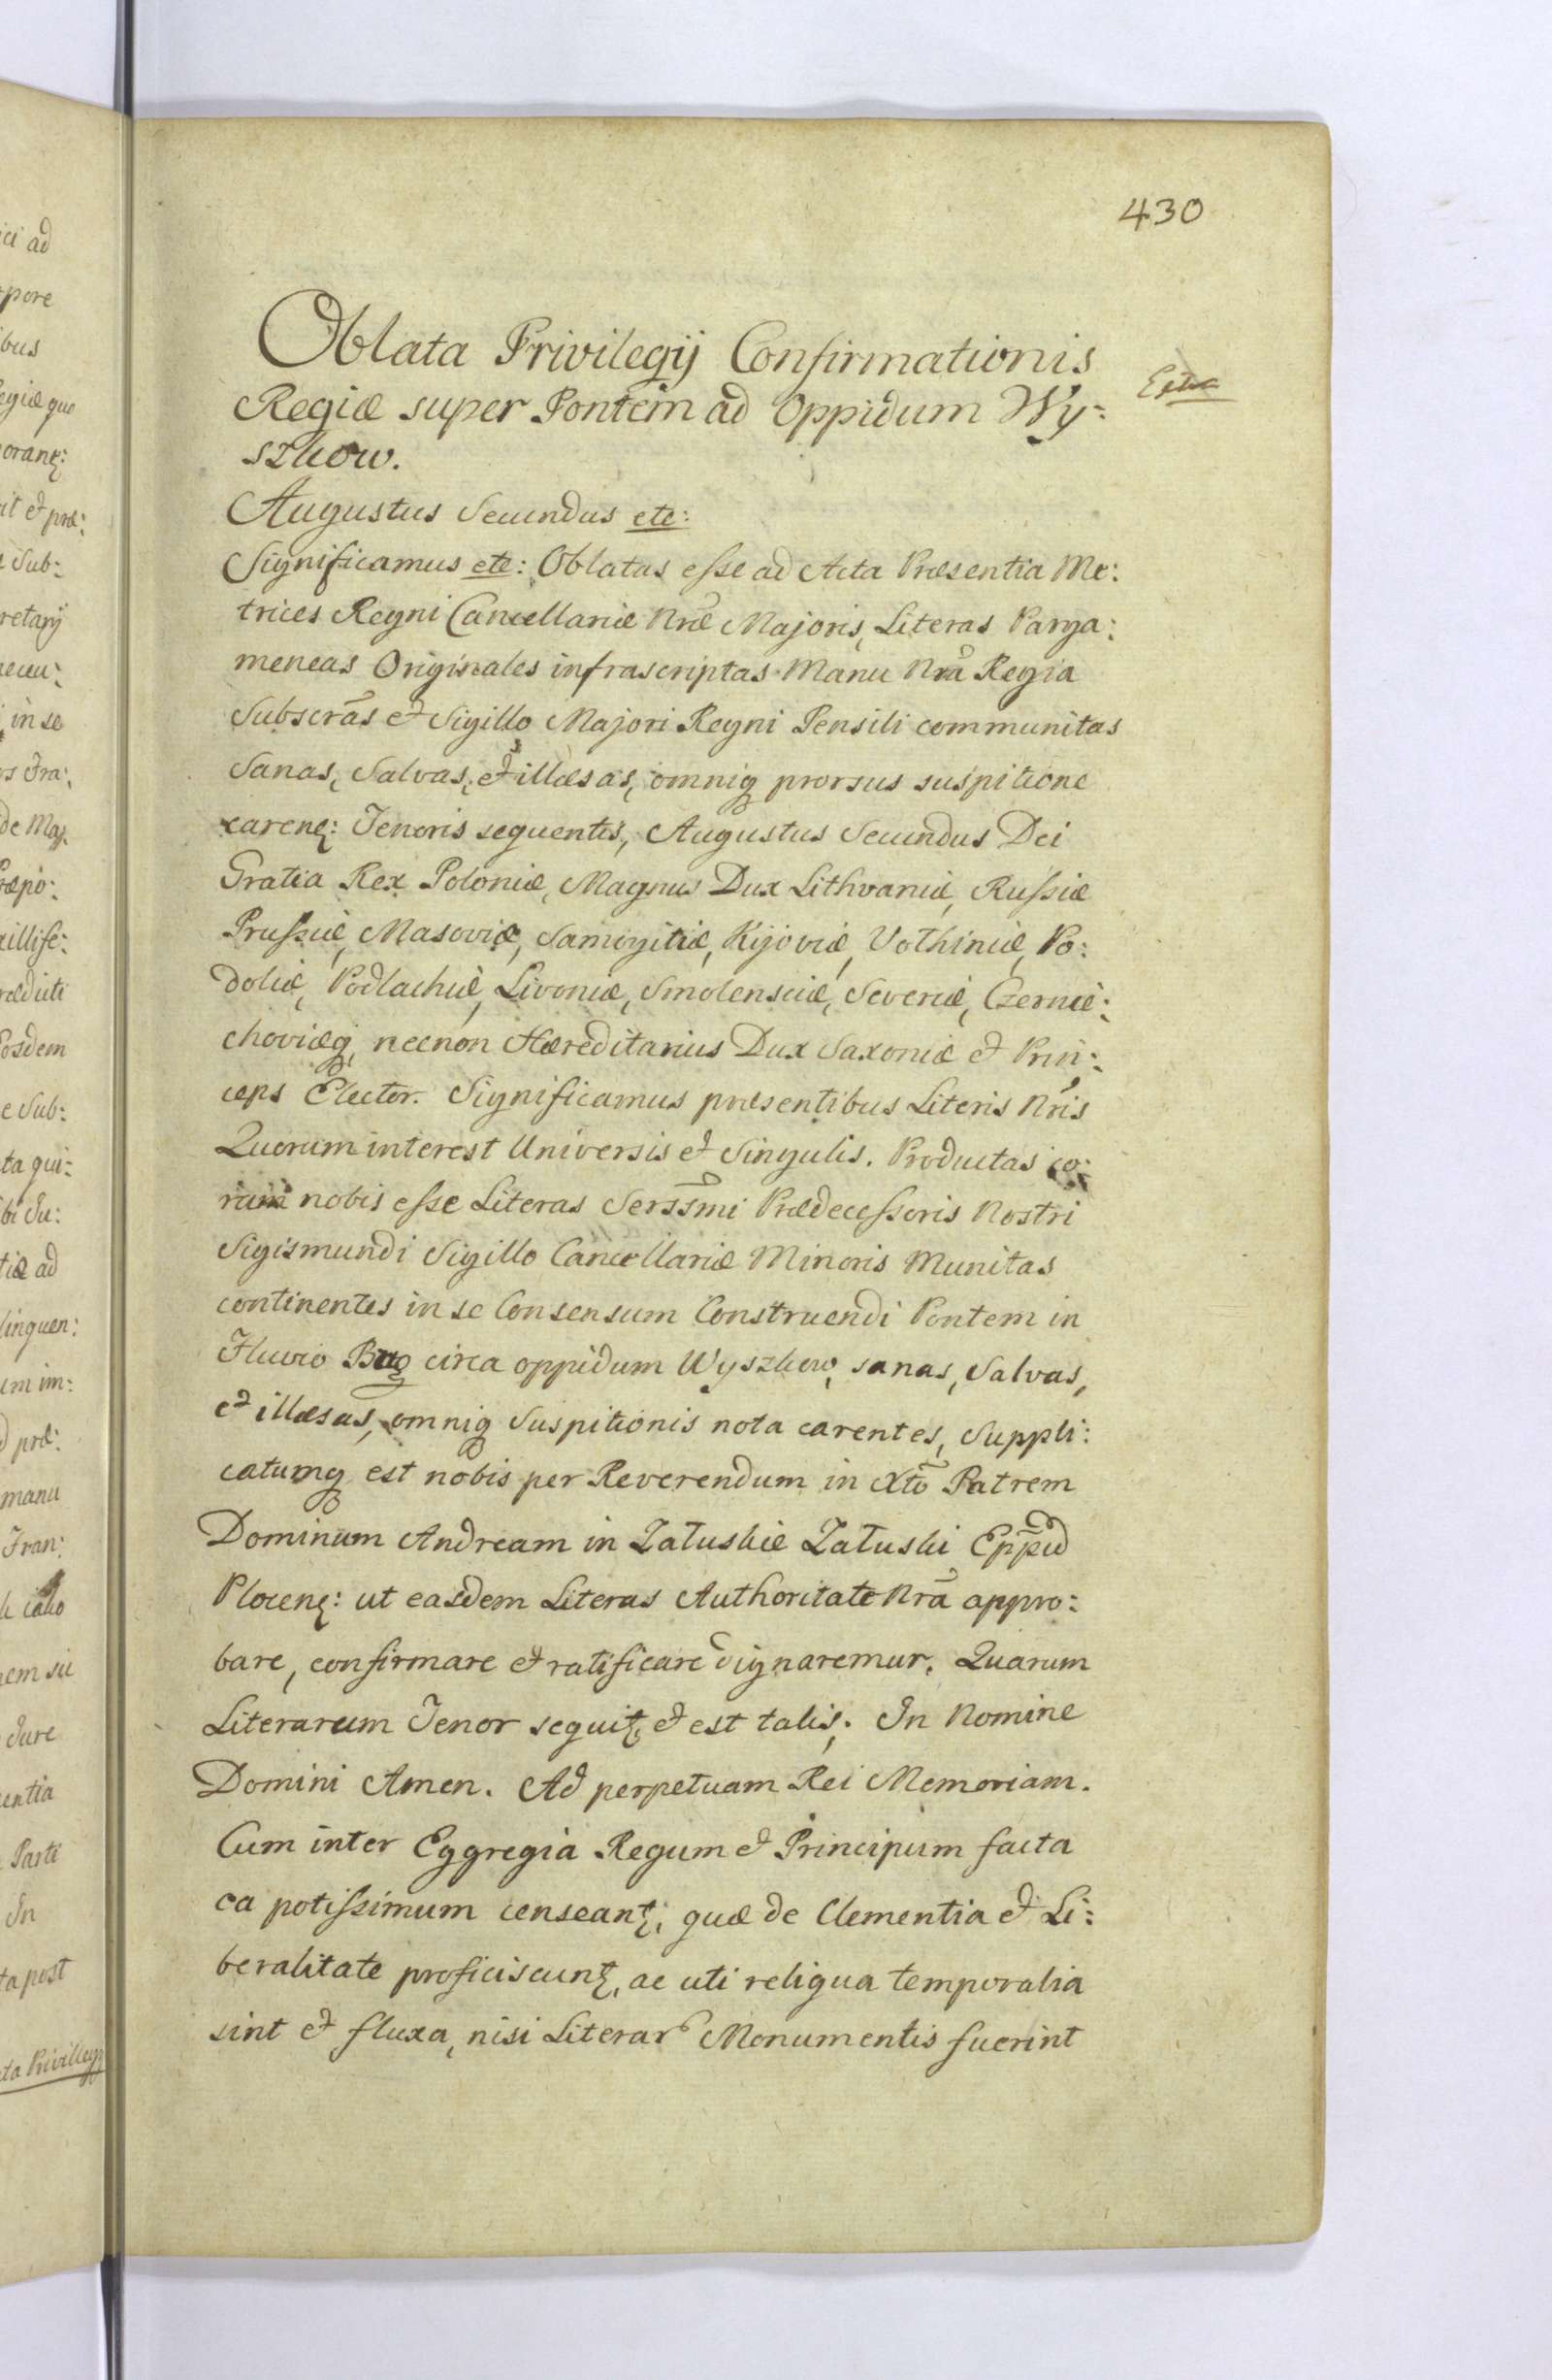 430
Oblata Privilegij Confirmationis
Regiæ super Pontem ad Oppidum Wy:
szkow.
Extra
Augustus Secundus etc:
Significamus etc: Oblatas esse ad Acta Præsentia Me:
trices Regni Cancellariæ Nræ Majoris, Literas Parga:
meneas Originales infrascriptas Manu Nrã Regia
Subscrãs et Sigillo Majori Regni Pensili communitas
Sanas, Salvas, et illæsas, omniq prorsus suspitione
carenę: Tenoris sequentis, Augustus Secundus Dei
Gratia Rex Poloniæ, Magnus Dux Lithvaniæ, Russiæ
Prussiæ, Masoviæ, Samogitiæ, Kijoviæ, Volhiniæ, Po:
doliæ, Podlachiæ, Livoniæ, Smolensciæ, Severiæ, Czernie:
choviæq, necnon Hæreditarius Dux Saxoniæ et Prin:
ceps Elector. Significamus præsentibus Literis Nrĩs
Quorum interest Universis et Singulis. Productas co:
ram nobis esse Literas Serssmi Prædecessoris Nostri
Sigismundi Sigillo Cancellariæ Minoris Munitas
continentes in se Consensum Construendi Pontem in
Fluvio Bug circa oppidum Wyszkow, sanas, Salvas,
et illæsas, omniq Suspitionis nota carentes, Suppli:
catumq est nobis per Reverendum in Xtõ Patrem
Dominum Andream in Załuskie Załuski Eppũ
Plocenę: ut easdem Literas Authoritate Nrã appro:
bare, confirmare et ratificare dignaremur. Quarum
Literarum Tenor sequitꝫ et est talis. In Nomine
Domini Amen. Ad perpetuam Rei Memoriam.
Cum inter Eggregia Regum et Principum facta
ea potissimum censeantꝫ, quæ de Clementia et Li:
beralitate proficiscuntꝫ, ac uti reliqua temporalia
sint et fluxa, nisi Literar Monumentis fuerint